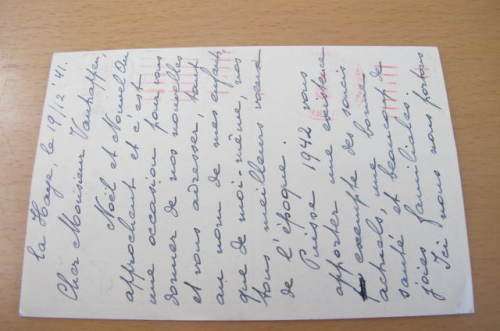 La Haye, le 19/12 '41.
Cher Monsieur Vanhaffen,
Noël et Nouvel An
approchent et c'est
une occasion pour vous
donner de nos nouvelles
et vous adresser, tant
au nom de mes enfants
que de moi-même, nos
tous meilleurs voeux
de l'époque.
Puisse 1942 vous
apporter une existence
exempte des soucis
actuels, une bonne
santé et beaucoup de
joies familiales.
Ici nous nous portons